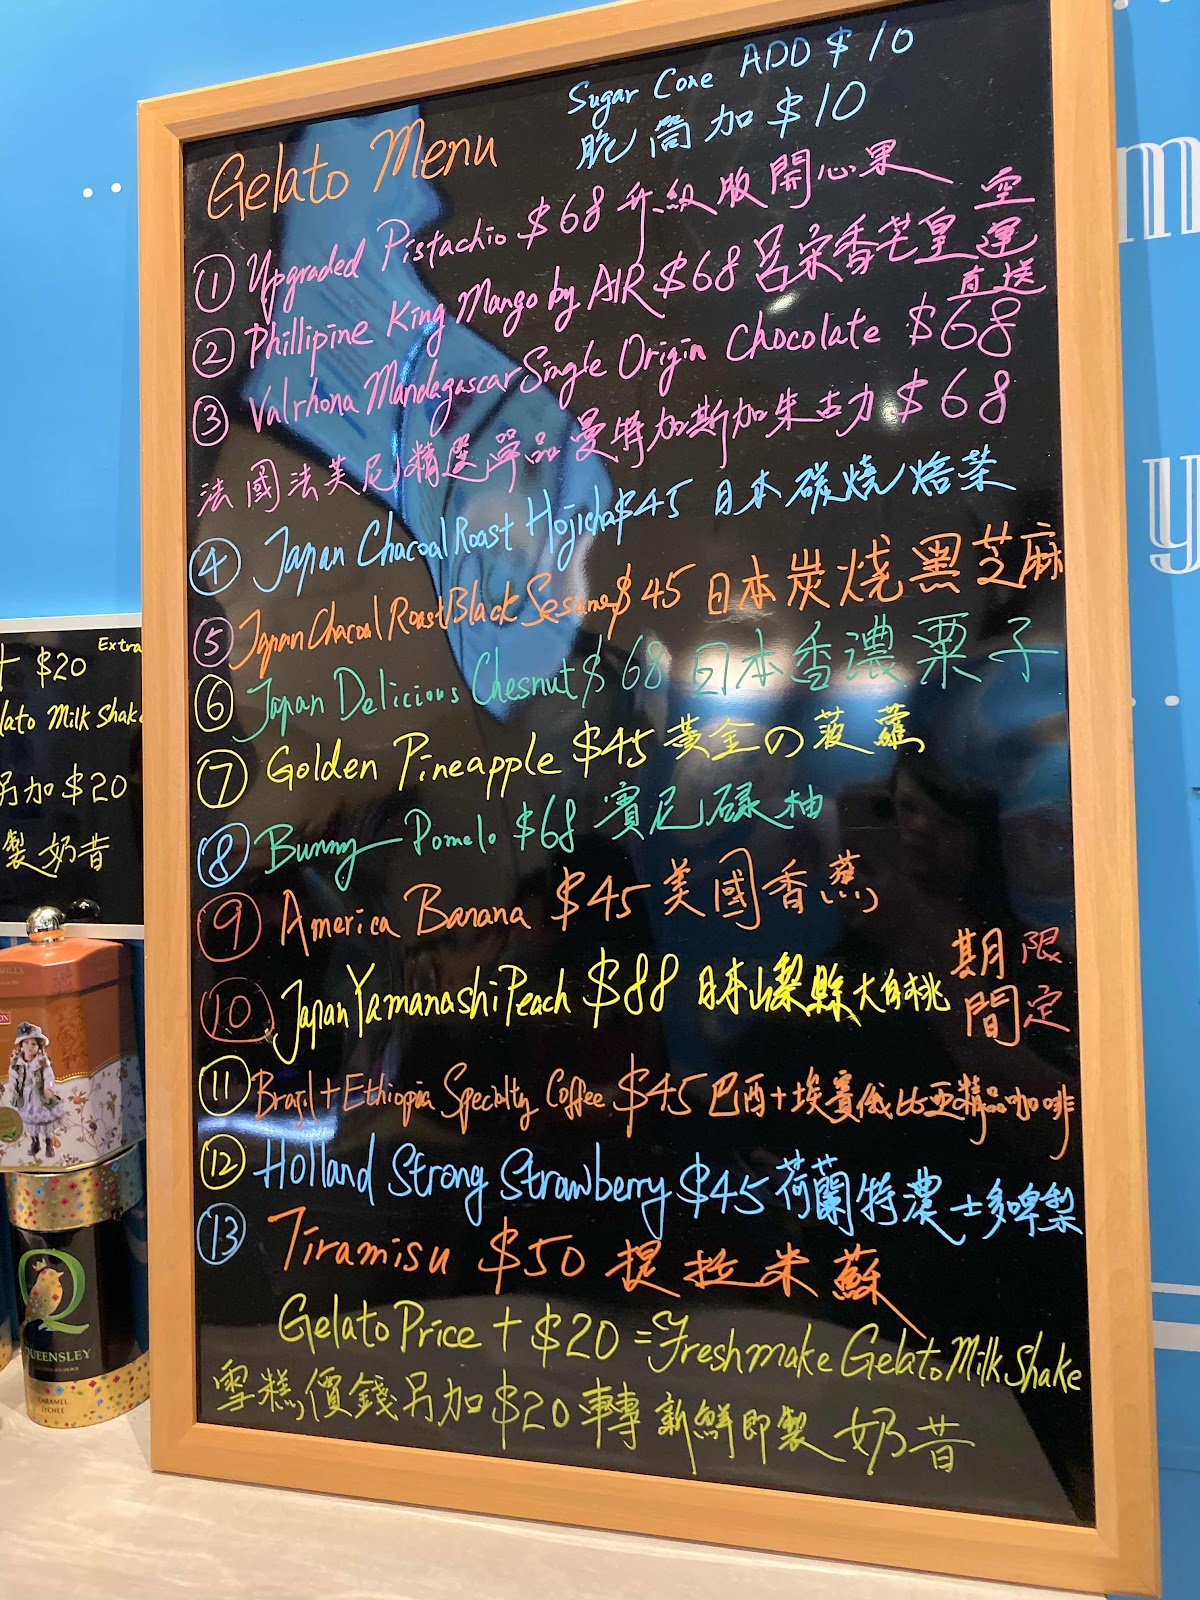 Sugar Cone ADD $10
脆筒加$10
Gelato Menu
① Upgraded Pistachio $68 升級版開心果
② Phillipine King Mango by AIR $68 呂宋香芒皇 空運直送
③ Valrhona Mandagascar Single Origin Chocolate $68
法國法芙尼精選單品曼特加斯加朱古力 $68
④ Japan Chacoal Roast Hojicha $45 日本碳燒焙茶
⑤ Japan Chacoal Roast Black Sesame $45 日本炭燒黑芝麻
⑥ Japan Delicious Chesnut $68 日本香濃栗子
⑦ Golden Pineapple $45 黃金の菠蘿
⑧ Bunny Pomelo $68 賓尼碌柚
⑨ America Banana $45 美國香蕉
⑩ Japan Yamanashi Peach $88 日本山梨縣大白桃 期間限定
⑪ Brazil + Ethiopia Specialty Coffee $45 巴西+埃賽俄比亞精品咖啡
⑫ Holland Strong Strawberry $45 荷蘭特濃士多啤梨
⑬ Tiramisu $50 提拉米蘇
Gelato Price + $20 = Freshmake Gelato Milk Shake
雪糕價錢另加$20轉新鮮即製奶昔
Extra
+ $20
lato Milk Shake
另加$20
製奶昔
m
y
QUEENSLEY
CARAMEL
LYCHEE